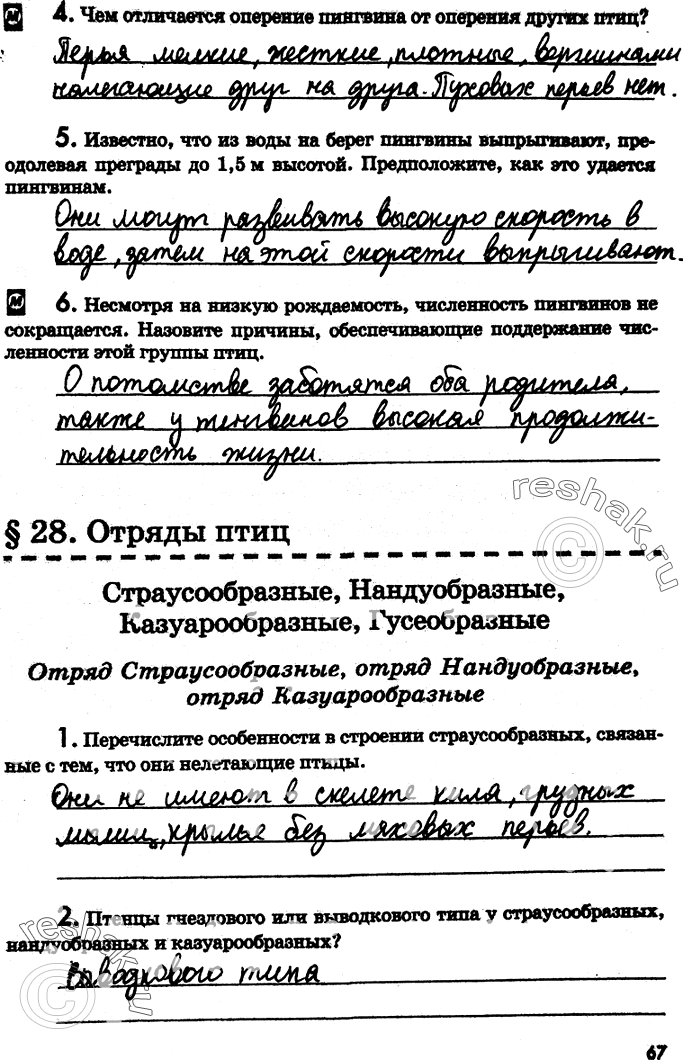 4. Чем отличается оперение пингвина от оперения других птиц?
Перья мелкие, жесткие, плотные, вершинами
налегающие друг на друга. Пуховых перьев нет.
5. Известно, что из воды на берег пингвины выпрыгивают, пре-
одолевая преграды до 1,5 м высотой. Предположите, как это удается
пингвинам.
Они могут развивать высокую скорость в
воде, затем на этой скорости выпрыгивают.
6. Несмотря на низкую рождаемость, численность пингвинов не
сокращается. Назовите причины, обеспечивающие поддержание чис-
ленности этой группы птиц.
О потомстве заботятся оба родителя,
также у пингвинов высокая продолжи-
тельность жизни.
reshak.ru
§ 28. Отряды птиц
Страусообразные, Нандуобразные,
Казуарообразные, Гусеобразные
Отряд Страусообразные, отряд Нандуобразные,
отряд Казуарообразные
1. Перечислите особенности в строении страусообразных, связан-
ные с тем, что они нелетающие птицы.
Они не имеют в скелете киля, грудных
мышц, крылья без маховых перьев.
2. Птенцы гнездового или выводкового типа у страусообразных,
нандуобразных и казуарообразных?
выводкового типа
reshak.ru
67